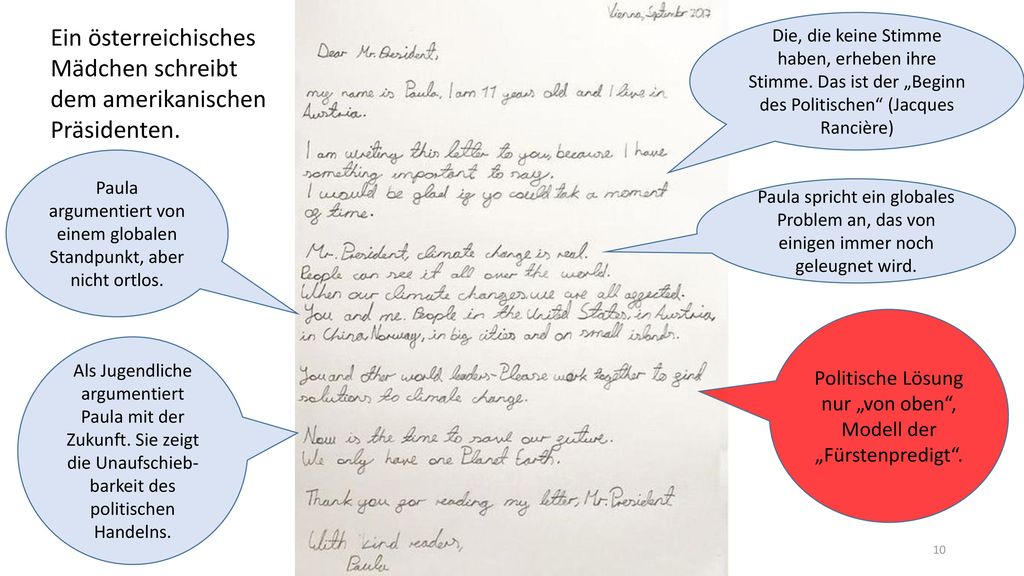 Ein österreichisches
Mädchen schreibt
dem amerikanischen
Präsidenten.
Vienna, September 2017
Dear Mr. President,
my name is Paula, I am 11 years old and I live in
Austria.
I am writing this letter to you, because I have
something important to say.
I would be glad if yo could tak a moment
of time.
Mr. President, climate change is real.
People can see it all over the world.
When our climate changes, we are all affected.
You and me. People in the United States, in Austria,
in China, Norway, in big cities and on small islands.
You and other world leaders - Please work together to find
solutions to climate change.
Now is the time to save our future.
We only have one Planet Earth.
Thank you for reading my letter, Mr. President
With kind readers,
Paula
Die, die keine Stimme
haben, erheben ihre
Stimme. Das ist der „Beginn
des Politischen“ (Jacques
Rancière)
Paula
argumentiert von
einem globalen
Standpunkt, aber
nicht ortlos.
Paula spricht ein globales
Problem an, das von
einigen immer noch
geleugnet wird.
Als Jugendliche
argumentiert
Paula mit der
Zukunft. Sie zeigt
die Unaufschieb-
barkeit des
politischen
Handelns.
Politische Lösung
nur „von oben“,
Modell der
„Fürstenpredigt“.
10